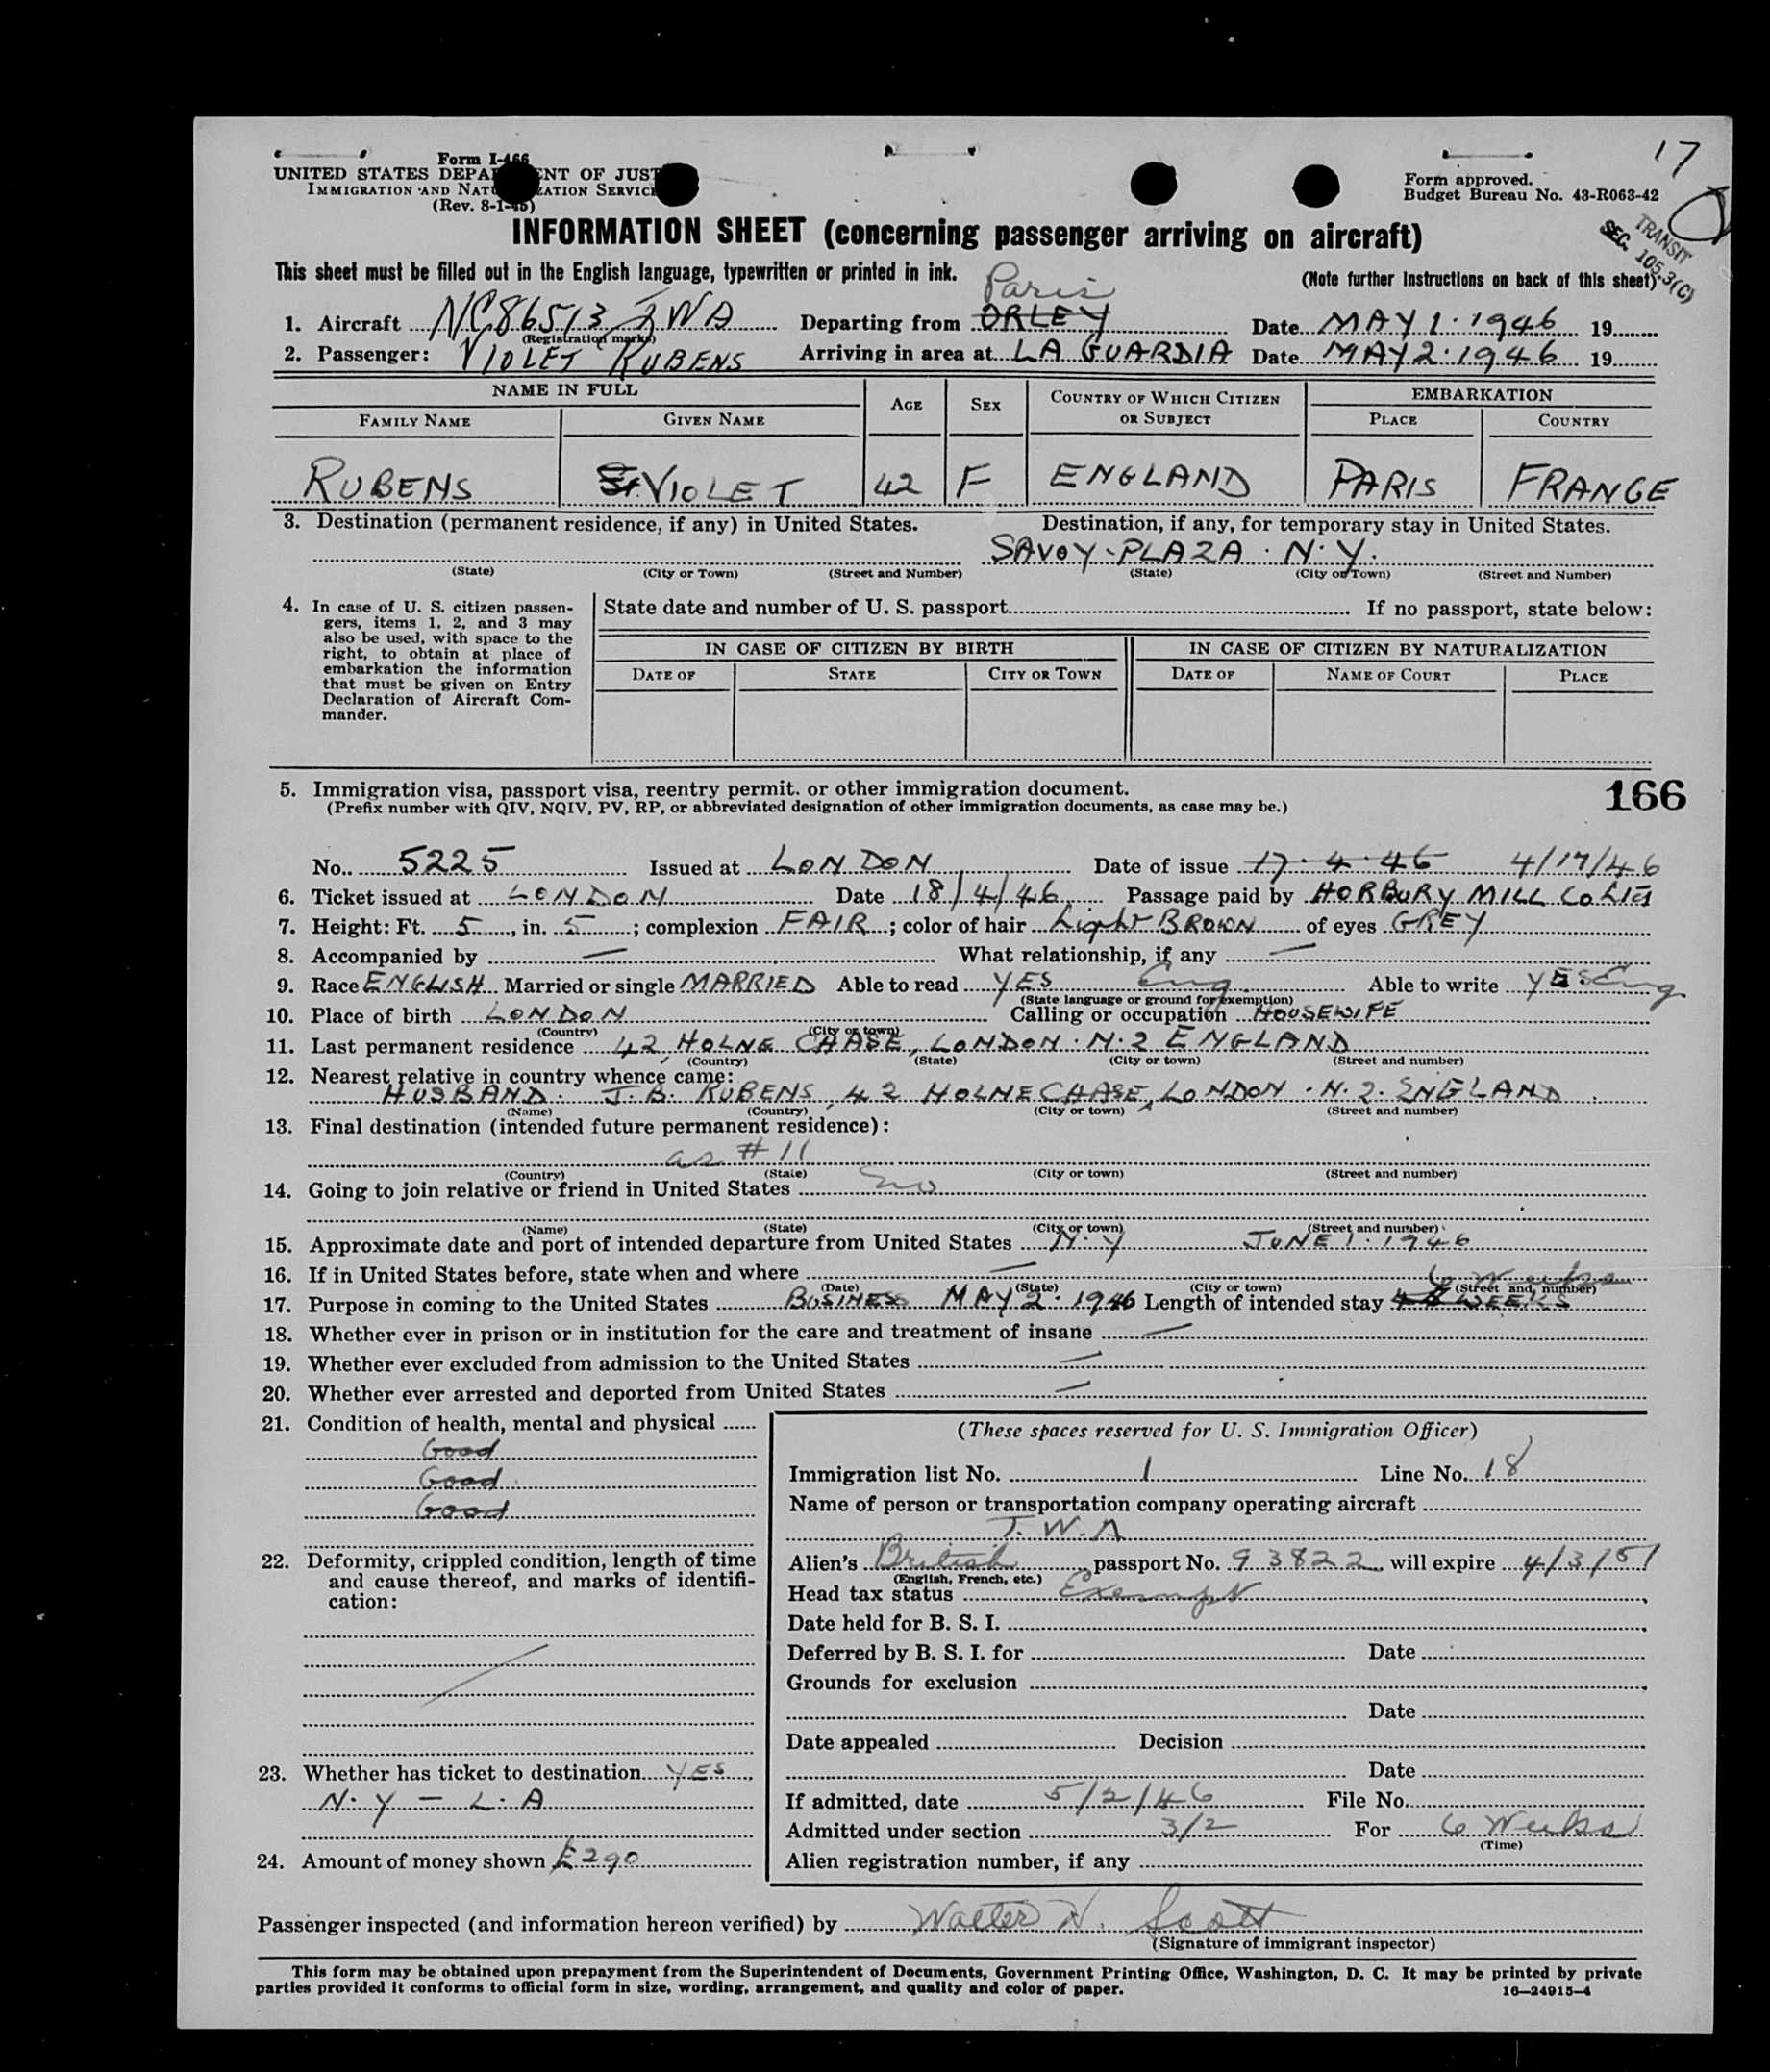 17
Form I-466
UNITED STATES DEPA NT OF JUST
IMMIGRATION AND NATU ZATION SERVIC
(Rev. 8-1-45)
Form approved.
Budget Bureau No. 43-R063-42
TRANSIT
SEC. 105.3(C)
INFORMATION SHEET (concerning passenger arriving on aircraft)
This sheet must be filled out in the English language, typewritten or printed in ink.
(Note further instructions on back of this sheet)
Paris
1. Aircraft NC86513 TWA Departing from ORLEY Date MAY 1. 1946 19
(Registration marks)
2. Passenger: VIOLET RUBENS Arriving in area at LA GUARDIA Date MAY 2. 1946 19
NAME IN FULL AGE SEX COUNTRY OF WHICH CITIZEN OR SUBJECT EMBARKATION
FAMILY NAME GIVEN NAME PLACE COUNTRY
RUBENS VIOLET 42 F ENGLAND PARIS FRANCE
3. Destination (permanent residence, if any) in United States. Destination, if any, for temporary stay in United States.
SAVOY-PLAZA. N.Y.
(State) (City or Town) (Street and Number) (State) (City or Town) (Street and Number)
4. In case of U. S. citizen passen-
gers, items 1, 2, and 3 may
also be used, with space to the
right, to obtain at place of
embarkation the information
that must be given on Entry
Declaration of Aircraft Com-
mander.
State date and number of U. S. passport If no passport, state below:
IN CASE OF CITIZEN BY BIRTH IN CASE OF CITIZEN BY NATURALIZATION
DATE OF STATE CITY OR TOWN DATE OF NAME OF COURT PLACE
5. Immigration visa, passport visa, reentry permit. or other immigration document.
166
(Prefix number with QIV, NQIV, PV, RP, or abbreviated designation of other immigration documents, as case may be.)
No. 5225 Issued at LONDON Date of issue 17.4.46 4/17/46
6. Ticket issued at LONDON Date 18/4/46 Passage paid by HORBURY MILL Co Ltd
7. Height: Ft. 5, in. 5; complexion FAIR; color of hair Light BROWN of eyes GREY
8. Accompanied by — What relationship, if any —
9. Race ENGLISH Married or single MARRIED Able to read YES Eng. Able to write YES Eng
(State language or ground for exemption)
10. Place of birth LONDON Calling or occupation HOUSEWIFE
(Country) (City or town)
11. Last permanent residence 42 HOLNE CHASE, LONDON. N.2 ENGLAND
(Country) (State) (City or town) (Street and number)
12. Nearest relative in country whence came:
HUSBAND. J. B. RUBENS, 42 HOLNE CHASE, LONDON. N.2. ENGLAND
(Name) (Country) (City or town) (Street and number)
13. Final destination (intended future permanent residence):
as # 11
(Country) (State) (City or town) (Street and number)
14. Going to join relative or friend in United States no
(Name) (State) (City or town) (Street and number)
15. Approximate date and port of intended departure from United States N.Y JUNE 1. 1946
16. If in United States before, state when and where —
6 Weeks
(Date) (State) (City or town) (Street and number)
17. Purpose in coming to the United States BUSINESS MAY 2. 1946 Length of intended stay WEEKS
18. Whether ever in prison or in institution for the care and treatment of insane —
19. Whether ever excluded from admission to the United States —
20. Whether ever arrested and deported from United States —
21. Condition of health, mental and physical
Good
Good
Good
22. Deformity, crippled condition, length of time
and cause thereof, and marks of identifi-
cation:
23. Whether has ticket to destination YES
N.Y — L.A
24. Amount of money shown £290
(These spaces reserved for U. S. Immigration Officer)
Immigration list No. 1 Line No. 18
Name of person or transportation company operating aircraft
T. W. A
Alien's British passport No. 93822 will expire 4/3/51
(English, French, etc.)
Head tax status Exempt
Date held for B. S. I.
Deferred by B. S. I. for Date
Grounds for exclusion
Date
Date appealed Decision
Date
If admitted, date 5/2/46 File No.
Admitted under section 3/2 For 6 Weeks
(Time)
Alien registration number, if any
Passenger inspected (and information hereon verified) by Walter N. Scott
(Signature of immigrant inspector)
This form may be obtained upon prepayment from the Superintendent of Documents, Government Printing Office, Washington, D. C. It may be printed by private
parties provided it conforms to official form in size, wording, arrangement, and quality and color of paper.
16—24915-4